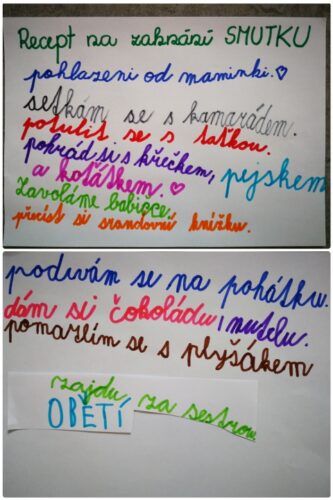 Recept na zahnání SMUTKU
pohlazení od maminky.♡
setkám se s kamarádem.
potulit se s taťkou.
pohrád si s křečkem, pejskem
a koťátkem.♡
Zavoláme babičce.
přečíst si srandovní knížku.
podívám se na pohátku.
dám si čokoládu, nuťelu.
pomazlím se s plyšákem
zajdu za sestrou
OBĚTÍ